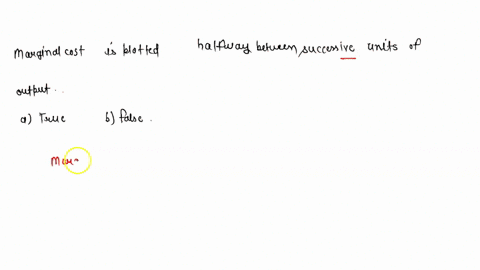 Marginal cost is plotted halfway between successive units of
output..
a) True b) false.
Mar